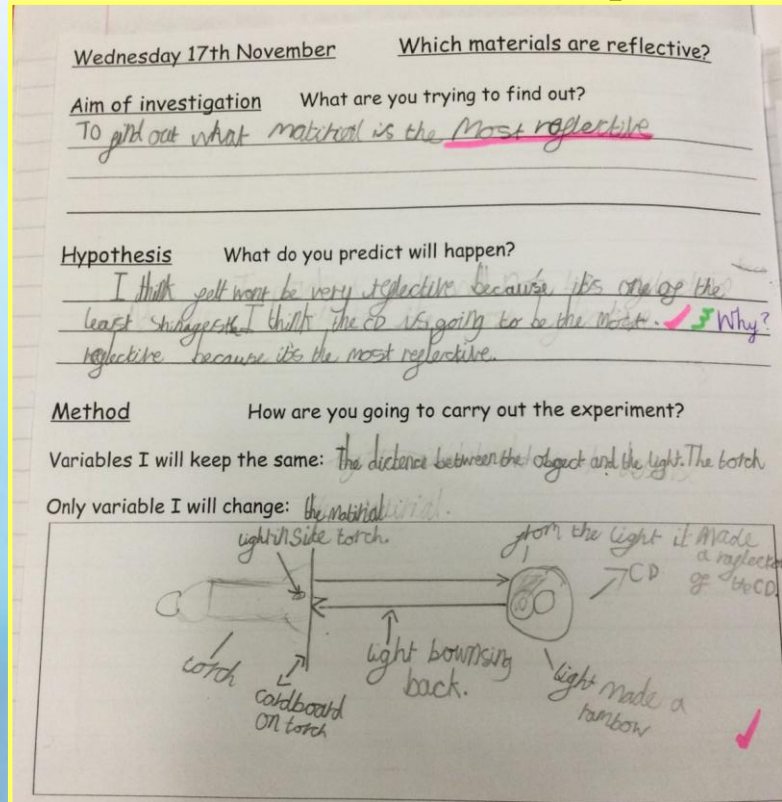 Wednesday 17th November Which materials are reflective?
Aim of investigation What are you trying to find out?
To find out what matirial is the Most reflective
Hypothesis What do you predict will happen?
I think felt wont be very reflective because it's one of the
least I think the CD is going to be the most. Why?
reflective because it's the most reflective.
Method How are you going to carry out the experiment?
Variables I will keep the same: The dictence between the obgect and the light. The torch
Only variable I will change: the matirial
light inside torch.
from the light it Made
a reflection
of the CD.
CD
torch
cardboard
on torch
light bownsing
back.
light made a
rainbow